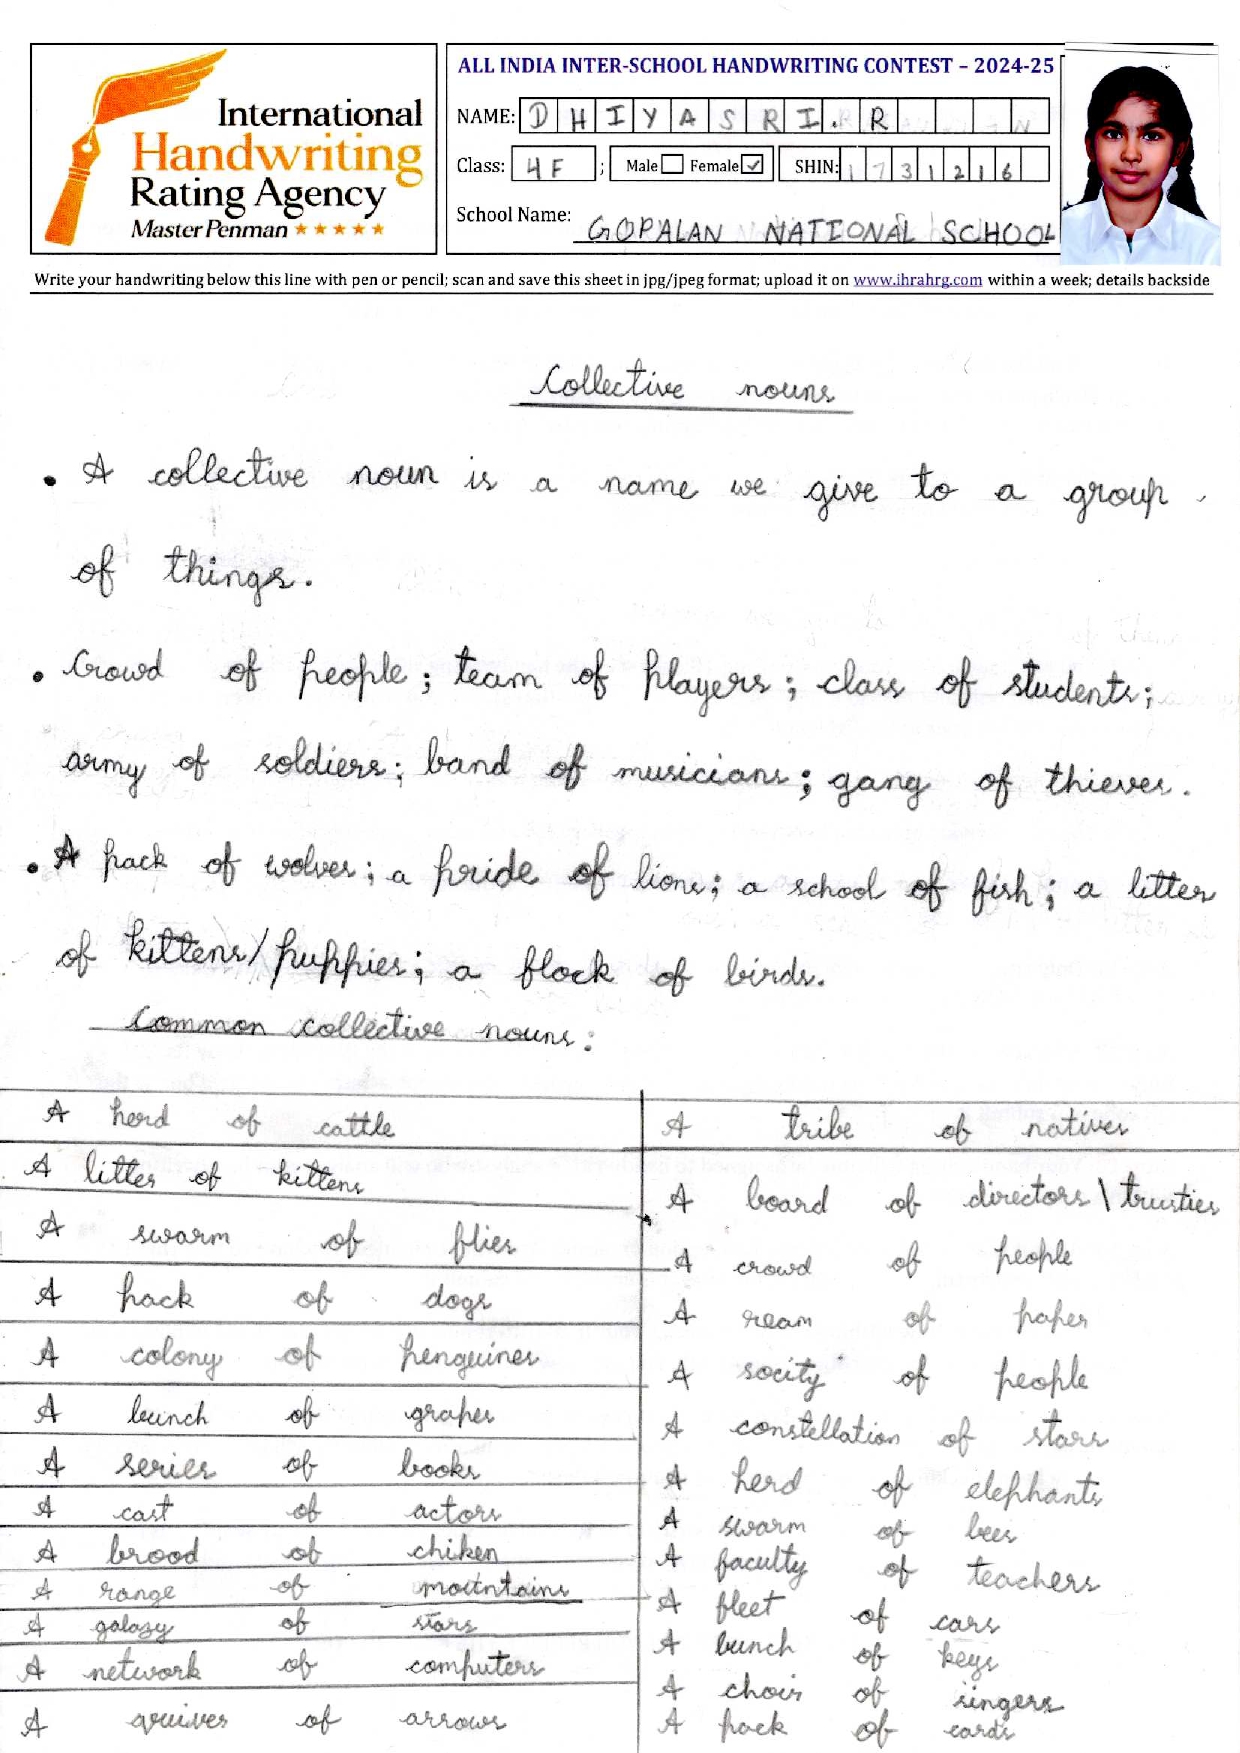 International
Handwriting
Rating Agency
Master Penman
ALL INDIA INTER-SCHOOL HANDWRITING CONTEST – 2024-25
NAME: DHIYASRI. R
Class: 4F ; Male Female ✓ SHIN: 1731216
School Name: GOPALAN NATIONAL SCHOOL
Write your handwriting below this line with pen or pencil; scan and save this sheet in jpg/jpeg format; upload it on www.ihrahrg.com within a week; details backside
Collective nouns
• A collective noun is a name we give to a group
of things.
• Crowd of people; team of players; class of students;
army of soldiers; band of musicians; gang of thieves.
• A pack of wolves; a pride of lions; a school of fish; a litter
of kittens/puppies; a flock of birds.
Common collective nouns:
A herd of cattle
A litter of kittens
A swarm of flies
A pack of dogs
A colony of penguines
A bunch of grapes
A series of books
A cast of actors
A brood of chiken
A range of mountains
A galaxy of stars
A network of computers
A quives of arrows
A tribe of natives
A board of directors\trusties
A crowd of people
A ream of paper
A socity of people
A constellation of stars
A herd of elephants
A swarm of bees
A faculty of teachers
A fleet of cars
A bunch of keys
A choir of singers
A pack of cards